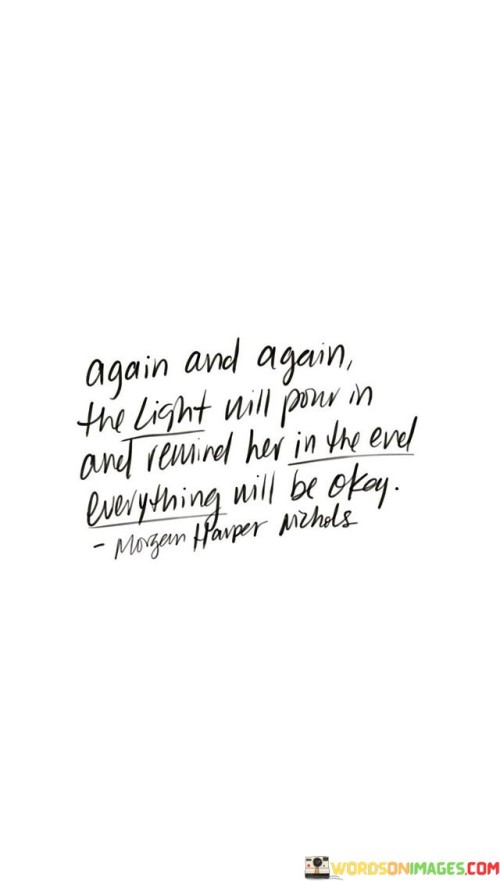 again and again,
the Light will pour in
and remind her in the end
everything will be okay.
- Morgan Harper Nichols
WORDSONIMAGES.COM